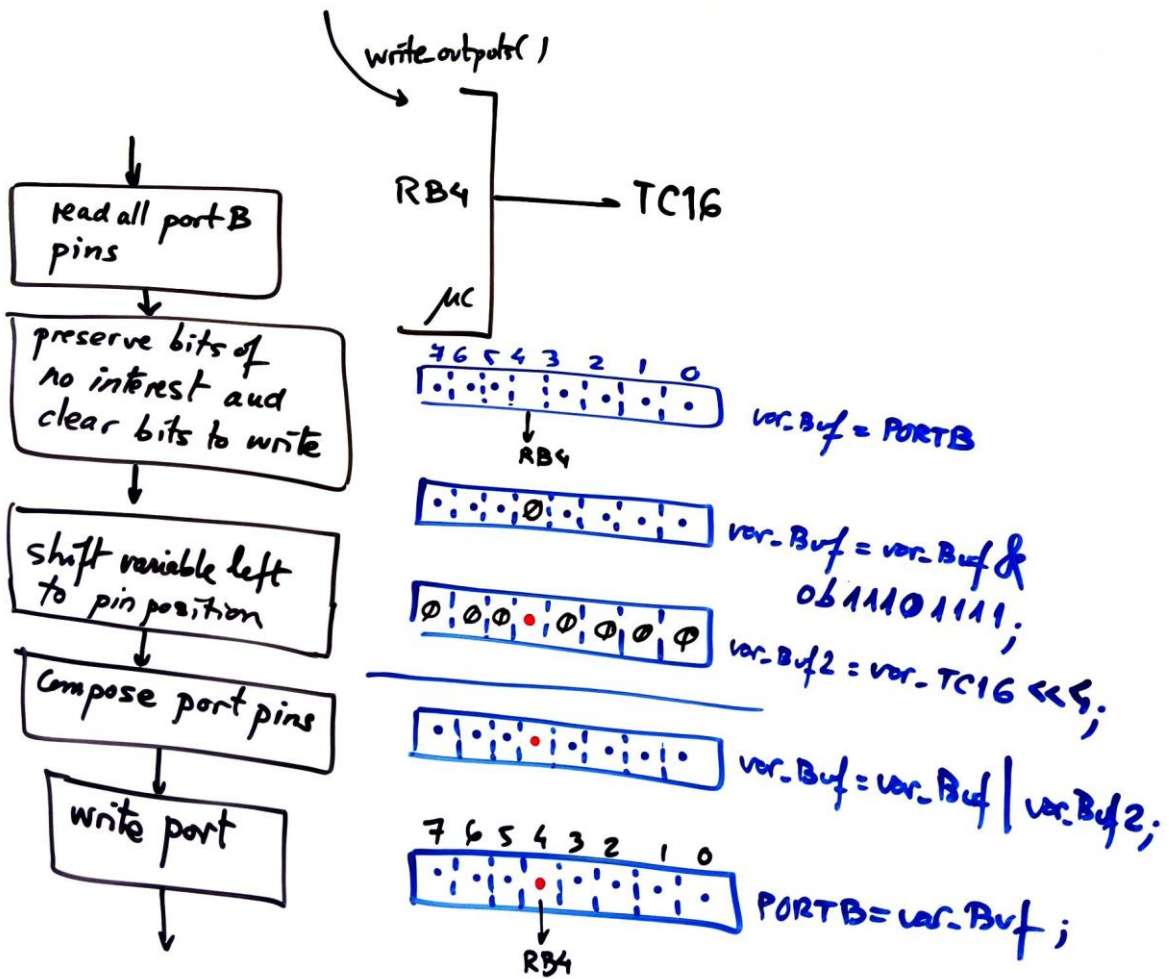 write_outputs()
RB4
TC16
µC
read all port B
pins
preserve bits of
no interest and
clear bits to write
shift variable left
to pin position
Compose port pins
write port
7 6 5 4 3 2 1 0
RB4
var_Buf = PORTB
0
var_Buf = var_Buf &
0b11101111;
0 0 0 0 0 0 0
var_Buf2 = var_TC16 <<4;
var_Buf = var_Buf | var_Buf2;
7 6 5 4 3 2 1 0
RB4
PORTB = var_Buf;